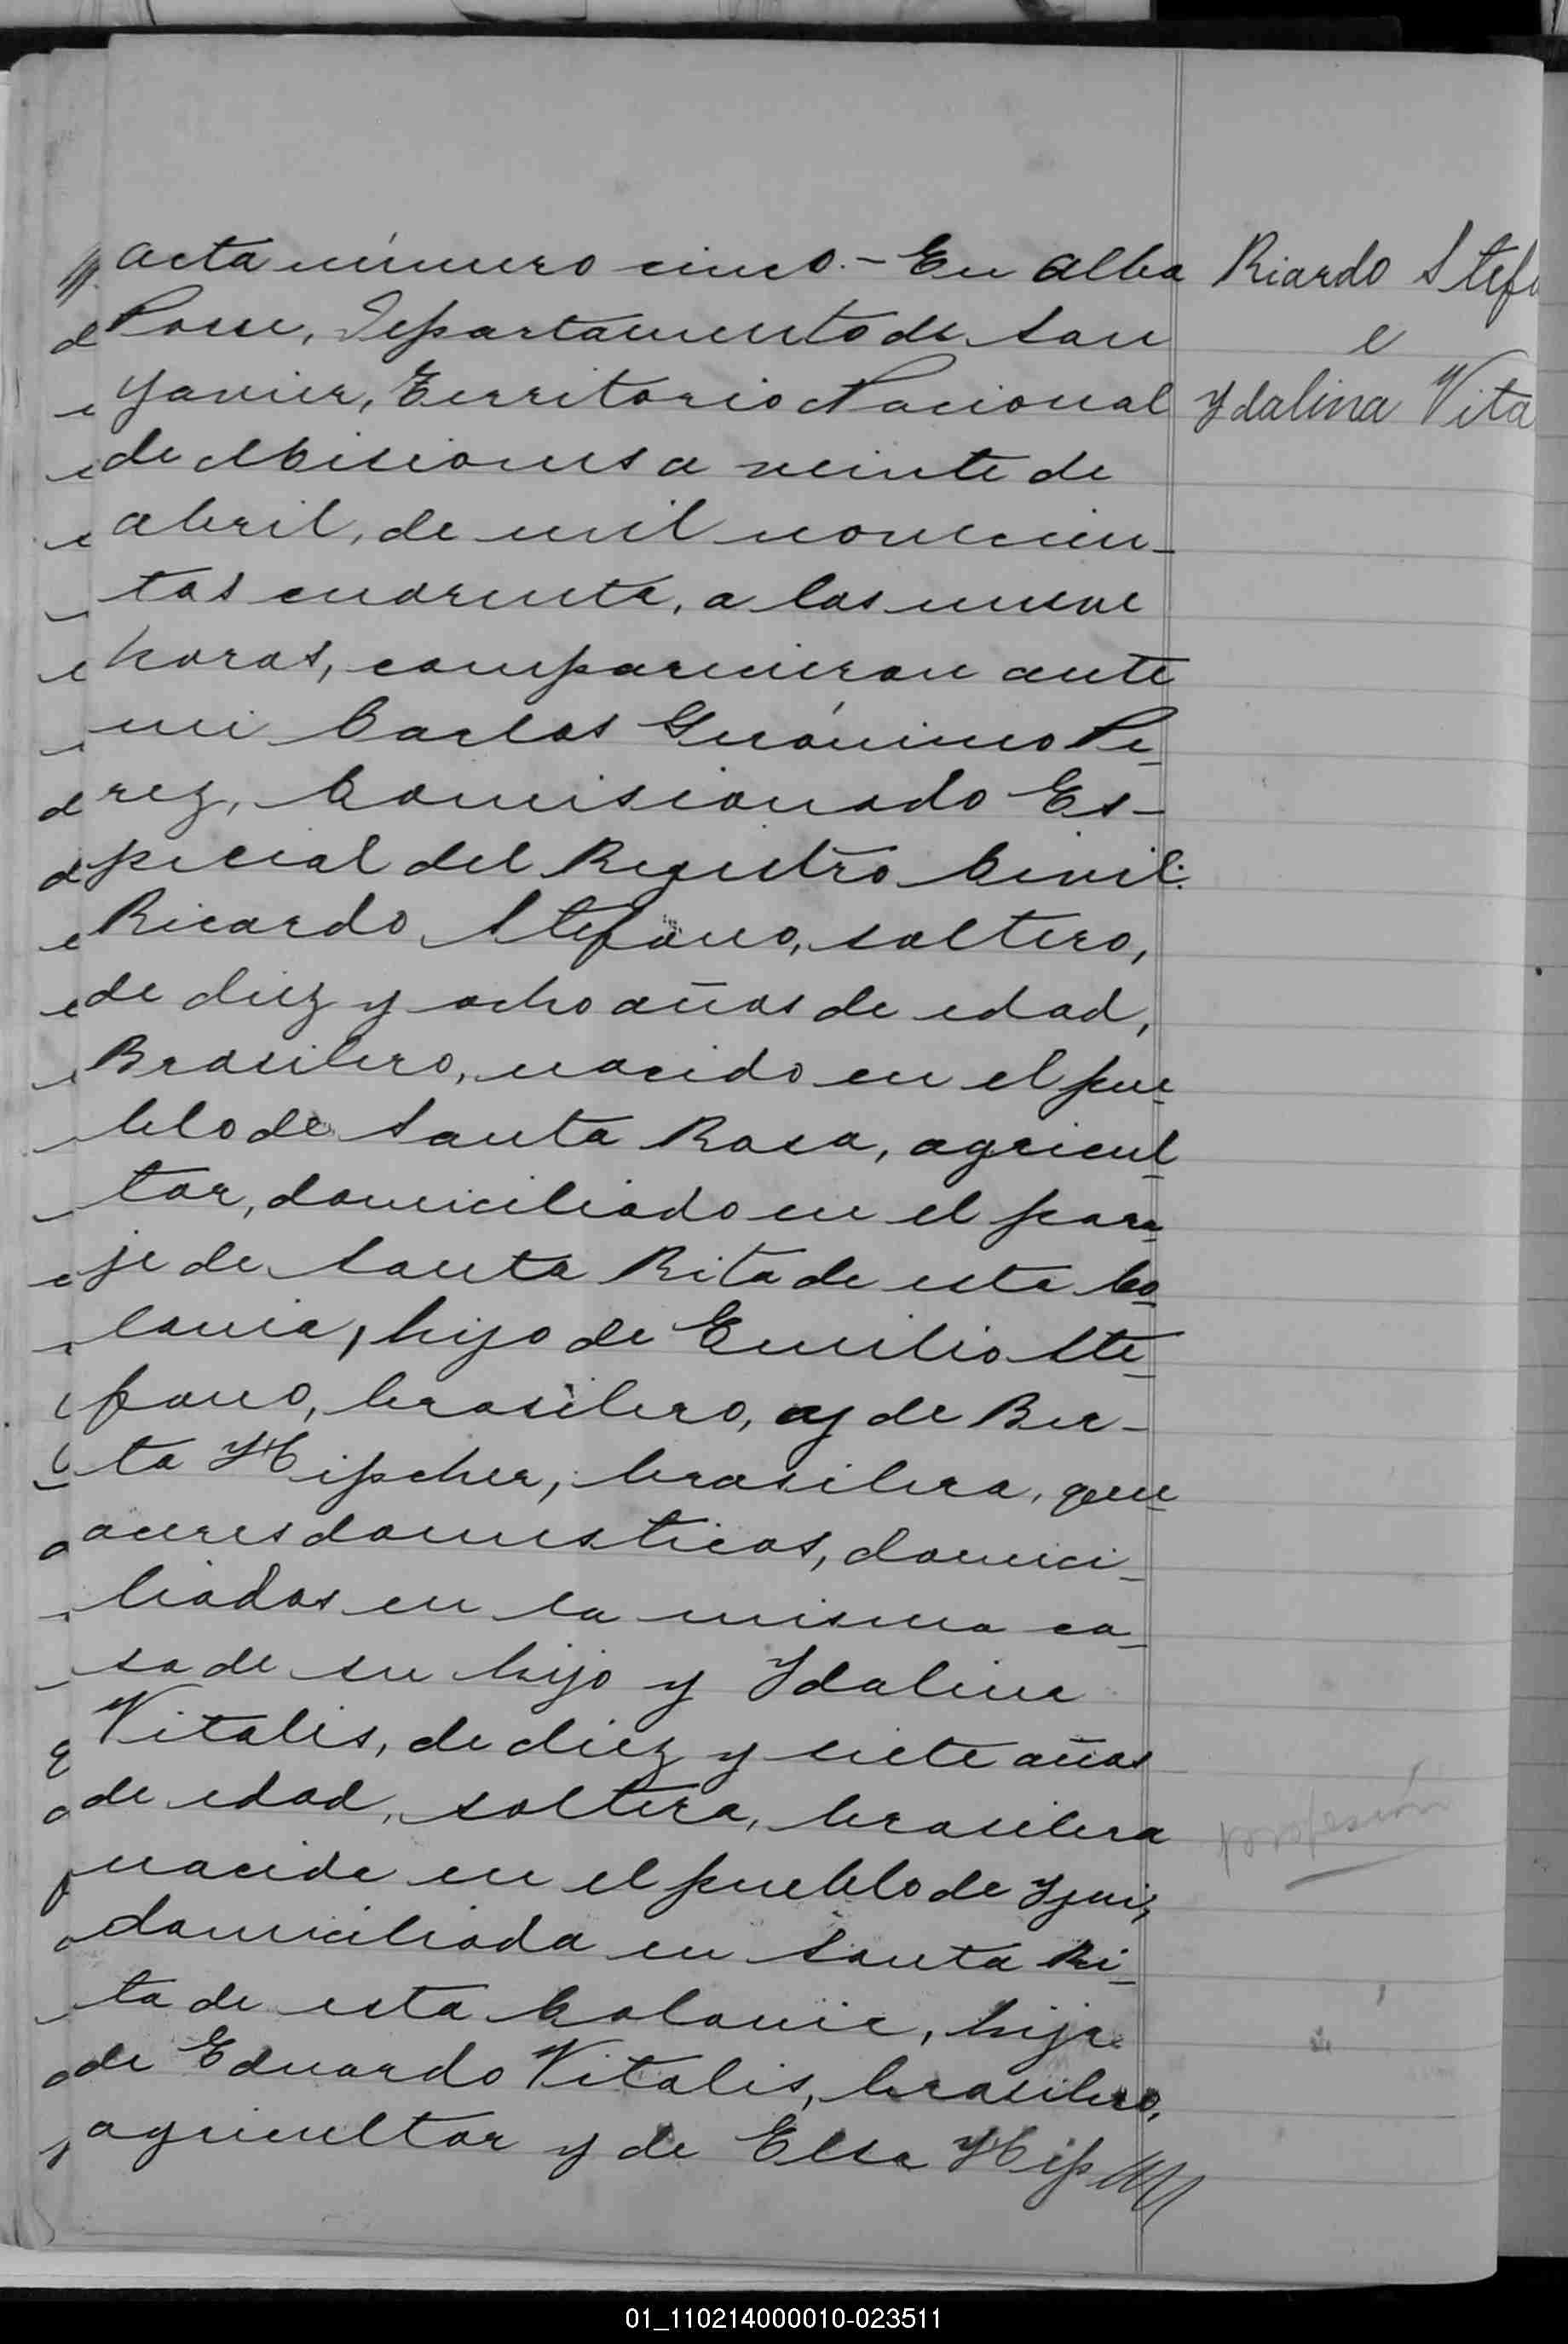 Acta número cinco.- En Alba
Posse, Departamento de San
Javier, Territorio Nacional
de Misiones a veinte de
abril, de mil novecien-
tos cuarenta, a las nueve
horas, comparecieron ante
mi Carlos Gerónimo Pe-
rez, Comisionado Es-
pecial del Registro Civil:
Ricardo Stefano, soltero,
de diez y ocho años de edad,
Brasilero, nacido en el pue-
blo de Santa Rosa, agricul-
tor, domiciliado en el para-
je de Santa Rita de esta Co-
lonia, hijo de Emilio Ste-
fano, brasilero, y de Ber-
ta Hipcher, brasilera, que-
aceres domesticos, domici-
liados en la misma ca-
sa de su hijo y Ydalina
Vitalis, de diez y siete años
de edad, soltera, brasilera
nacida en el pueblo de Yjui,
domiciliada en Santa Ri-
ta de esta Colonia, hija
de Eduardo Vitalis, brasilero,
agricultor y de Elsa Hip
Riardo Stef
e
Ydalina Vita
profesión
01_110214000010-023511